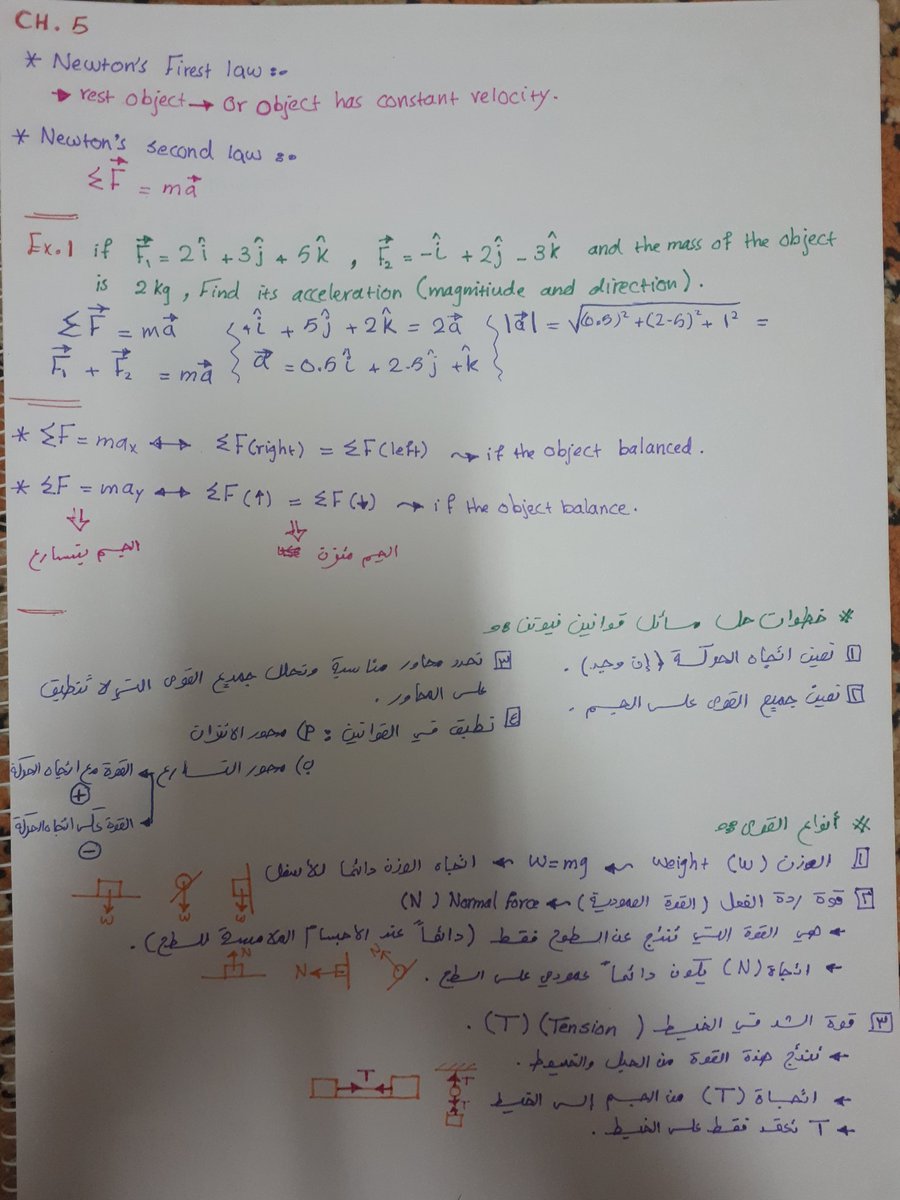 CH. 5
* Newton's Firest law :-
→ rest object → Or object has constant velocity.
* Newton's second law :-
ΣF⃗ = ma⃗
Ex.1 if F⃗₁ = 2î + 3ĵ + 5k̂ , F⃗₂ = -î + 2ĵ - 3k̂ and the mass of the object
is 2 kg, Find its acceleration (magnitiude and direction).
ΣF⃗ = ma⃗
F⃗₁ + F⃗₂ = ma⃗
î + 5ĵ + 2k̂ = 2a⃗
a⃗ = 0.5î + 2.5ĵ + k̂
|a⃗| = √(0.5)² + (2-5)² + 1² =
* ΣF = maₓ ↔ ΣF(right) = ΣF(left) ⇝ if the object balanced.
* ΣF = maᵧ ↔ ΣF(↑) = ΣF(↓) ⇝ if the object balance.
الجسم يتسارع
الجسم متزن
* خطوات حل مسائل قوانين نيوتن :-
١ نعين اتجاه الحركة (إن وجد) .
٢ نعين جميع القوى على الجسم .
٣ نحدد محاور مناسبة ونحلل جميع القوى التي لا تنطبق
على المحاور .
٤ نطبق في القوانين : أ) محور الاتزان
ب) محور التسارع
القوة مع اتجاه الحركة
+
القوة عكس اتجاه الحركة
-
* أنواع القوى :-
١ الوزن (W) weight ← W=mg ← اتجاه الوزن دائما للأسفل
W W W
٢ قوة ردة الفعل (القوة العمودية) ← Normal force (N)
← هي القوة التي تنتج عن السطوح فقط (دائماً عند الأجسام الملامسة للسطح) .
← اتجاة (N) يكون دائماً عمودي على السطح .
N N N
٣ قوة الشد في الخيط (Tension) (T) .
← تنتج هذة القوة من الحبل والخيوط .
← اتجاة (T) من الجسم إلى الخيط
← T تعتمد فقط على الخيط .
T T T